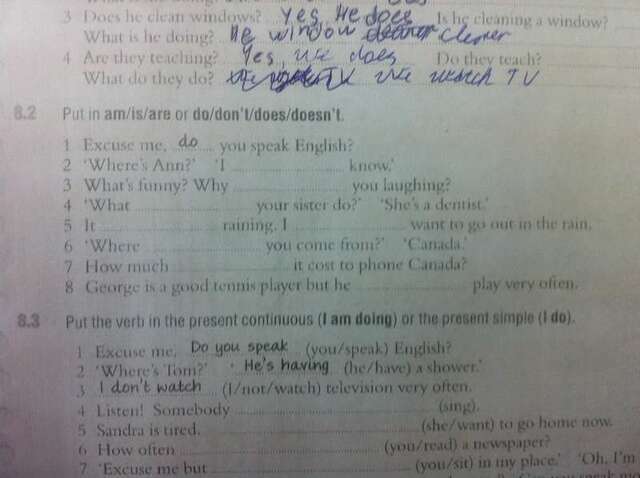 3 Does he clean windows? Yes, He does Is he cleaning a window?
What is he doing? He window cleaner
4 Are they teaching? Yes, we does Do they teach?
What do they do? we watch TV
8.2 Put in am/is/are or do/don't/does/doesn't.
1 Excuse me, do you speak English?
2 'Where's Ann?' 'I know.'
3 What's funny? Why you laughing?
4 'What your sister do?' 'She's a dentist.'
5 It raining. I want to go out in the rain.
6 'Where you come from?' 'Canada.'
7 How much it cost to phone Canada?
8 George is a good tennis player but he play very often.
8.3 Put the verb in the present continuous (I am doing) or the present simple (I do).
1 Excuse me, Do you speak (you/speak) English?
2 'Where's Tom?' 'He's having (he/have) a shower.'
3 I don't watch (I/not/watch) television very often.
4 Listen! Somebody (sing).
5 Sandra is tired. (she/want) to go home now.
6 How often (you/read) a newspaper?
7 'Excuse me but (you/sit) in my place.' 'Oh, I'm